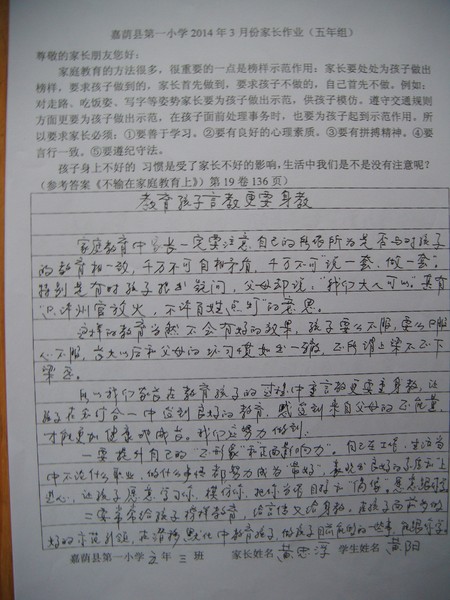 嘉荫县第一小学2014年3月份家长作业（五年组）
尊敬的家长朋友您好：
家庭教育的方法很多，很重要的一点是榜样示范作用：家长要处处为孩子做出
榜样，要求孩子做到的，家长首先做到，要求孩子不做的，自己首先不做。例如：
对走路、吃饭姿、写字等姿势家长要为孩子做出示范，供孩子模仿。遵守交通规则
方面更要为孩子做出示范，在孩子面前处理事务时，也要为孩子起到示范作用。所
以要求家长必须：①要善于学习。②要有良好的心理素质。③要有拼搏精神。④要
言行一致。⑤要遵纪守法。
孩子身上不好的 习惯是受了家长不好的影响，生活中我们是不是没有注意呢？
（参考答案《不输在家庭教育上》）第19卷136页）
教育孩子言教更要身教
家庭教育中家长一定要注意自己的所作所为是否与对孩子
的教育相一致，千万不可自相矛盾，千万不可"说一套、做一套"。
特别是有时孩子提出疑问，父母却说："我们大人可以"真有
"只许州官放火，不许百姓点灯"的意思。
这样的教育当然不会有好的效果，孩子要么不服，要么口服
心不服，长大以后和父母的坏习惯如出一辙，正所谓上梁不正下
梁歪。
所以我们家长在教育孩子的过程中重言教更要重身教，让
孩子在 中受到良好的教育，感受到来自父母的正能量，
才能更加健康的成长。我们应努力做到：
一要提升自己的"正形象"和"正面影响力"。自己在工作、生活当
中不论什么职业，做什么事情都努力成为"最好"，
心，让孩子愿意学习你，模仿你，把你当作目标和"偶像"
二要常常给孩子榜样教育，
好的示范引领，在潜移默化中教育孩子，做孩子
嘉荫县第一小学 五 年 三 班 家长姓名 黄 学生姓名 黄阳